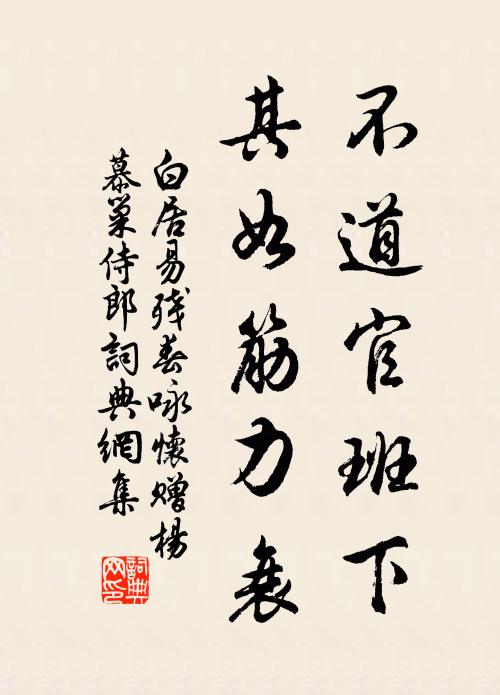 不道官班下
其如筋力衰
白居易残春咏懷贈楊
慕巢侍郎詞典網集
詞典网印